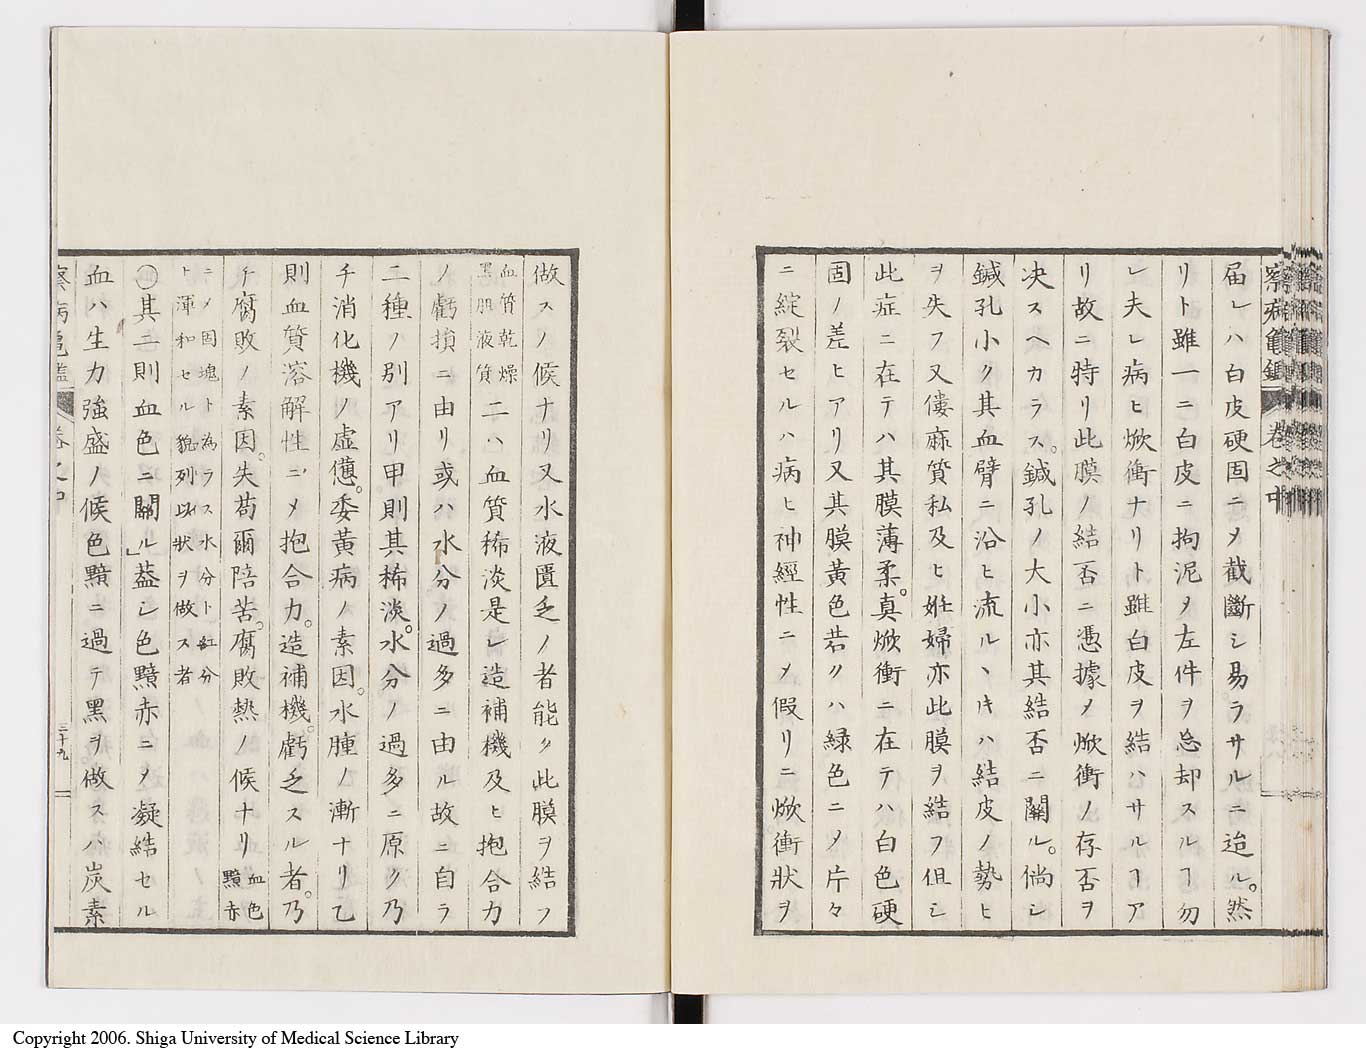 察病亀鑑 卷之中
届レハ白皮硬固ニメ截斷シ易ラサルニ迨ル。然
リト雖一ニ白皮ニ拘泥メ左件ヲ忘却スルヿ勿
レ夫レ病ヒ焮衝ナリト雖白皮ヲ結ハサルヿア
リ故ニ特リ此膜ノ結否ニ憑據メ焮衝ノ存否ヲ
决スヘカラス。鍼孔ノ大小亦其結否ニ關ル。倘シ
鍼孔小ク其血臂ニ沿ヒ流ルヽキハ結皮ノ勢ヒ
ヲ失フ又僂麻質私及ヒ妊婦亦此膜ヲ結フ但シ
此症ニ在テハ其膜薄柔。真焮衝ニ在テハ白色硬
固ノ差ヒアリ又其膜黃色若クハ緑色ニメ片々
ニ綻裂セルハ病ヒ神經性ニメ假リニ焮衝狀ヲ
做スノ候ナリ又水液匱乏ノ者能ク此膜ヲ結フ
血質乾燥
黑肌液質
二ハ血質稀淡是レ造補機及ヒ抱合力
ノ虧損ニ由リ或ハ水分ノ過多ニ由ル故ニ自ラ
二種ノ別アリ甲則其稀淡。水分ノ過多ニ原ク乃
チ消化機ノ虚憊。委黃病ノ素因。水腫ノ漸ナリ乙
則血質溶解性ニメ抱合力。造補機。虧乏スル者。乃
チ腐敗ノ素因。失苟爾陪苦。腐敗熱ノ候ナリ
血色
黯赤
ニメ固塊ト為ラス水分ト紅分
ト渾和セル貌列以狀ヲ做ス者
㊀其二則血色ニ關ル」葢シ色黯赤ニメ凝結セル
血ハ生力強盛ノ候色黯ニ過テ黑ヲ做スハ炭素
察病亀鑑 卷之中 三十九
Copyright 2006. Shiga University of Medical Science Library